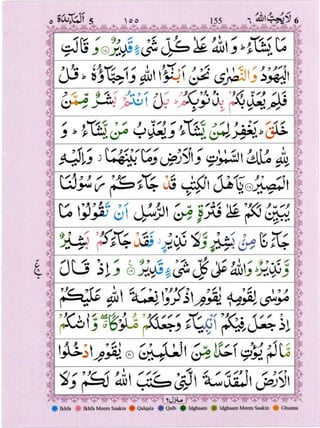 المآئدة ٥ ٥ ١٥٥ 155 لا يحب الله ٦ 6
مَا يَشَآءُ ؕ وَاللّٰهُ عَلٰى كُلِّ شَىْءٍ قَدِيْرٌ ۝ وَ قَالَتِ
الْيَهُوْدُ وَالنَّصٰرٰى نَحْنُ اَبْنٰٓؤُا اللّٰهِ وَاَحِبَّآؤُهٗ ؕ قُلْ
فَلِمَ يُعَذِّبُكُمْ بِذُنُوْبِكُمْ ؕ بَلْ اَنْتُمْ بَشَرٌ مِّمَّنْ
خَلَقَ ؕ يَغْفِرُ لِمَنْ يَّشَآءُ وَ يُعَذِّبُ مَنْ يَّشَآءُ ؕ وَ
لِلّٰهِ مُلْكُ السَّمٰوٰتِ وَالْاَرْضِ وَمَا بَيْنَهُمَا ؗ وَاِلَيْهِ
الْمَصِيْرُ ۝ يٰۤاَهْلَ الْكِتٰبِ قَدْ جَآءَكُمْ رَسُوْلُنَا
يُبَيِّنُ لَكُمْ عَلٰى فَتْرَةٍ مِّنَ الرُّسُلِ اَنْ تَقُوْلُوْا مَا
جَآءَنَا مِنْۢ بَشِيْرٍ وَّلَا نَذِيْرٍ ؗ فَقَدْ جَآءَكُمْ بَشِيْرٌ
وَّنَذِيْرٌ ؕ وَاللّٰهُ عَلٰى كُلِّ شَىْءٍ قَدِيْرٌ ۝ وَ اِذْ قَالَ
مُوْسٰى لِقَوْمِهٖ يٰقَوْمِ اذْكُرُوْا نِعْمَةَ اللّٰهِ عَلَيْكُمْ
اِذْ جَعَلَ فِيْكُمْ اَنْۢبِيَآءَ وَجَعَلَكُمْ مُّلُوْكًا ۗ وَّاٰتٰىكُمْ
مَّا لَمْ يُؤْتِ اَحَدًا مِّنَ الْعٰلَمِيْنَ ۝ يٰقَوْمِ ادْخُلُوا
الْاَرْضَ الْمُقَدَّسَةَ الَّتِىْ كَتَبَ اللّٰهُ لَكُمْ وَلَا
منزل ٢
Ikhfa Ikhfa Meem Saakin Qalqala Qalb Idghaam Idghaam Meem Saakin Ghunna